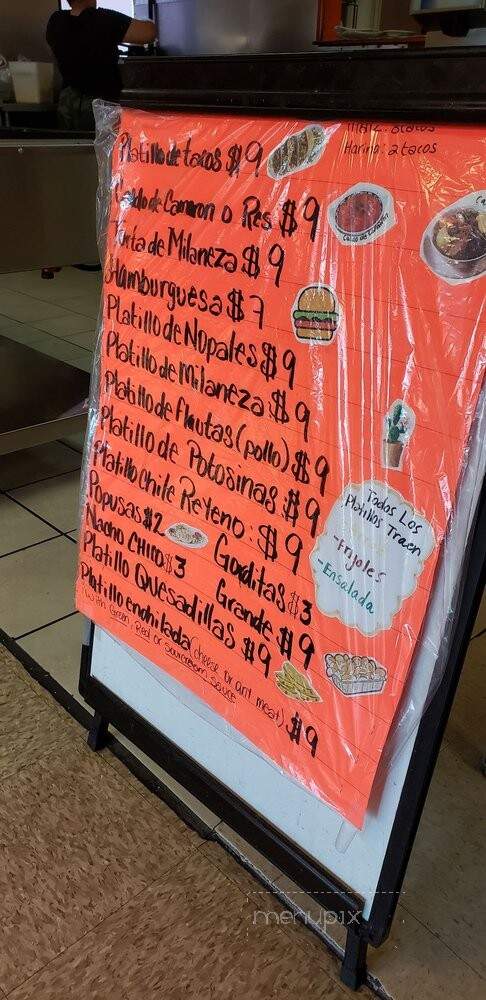 Maiz: 3tacos
Harina: 2 tacos
Platillo de tacos $9
Caldo de Camaron o Res $9
Torta de Milaneza $9
Hamburguesa $7
Platillo de Nopales $9
Platillo de Milaneza $9
Platillo de flautas (pollo) $9
Platillo de Potosinas $9
Platillo Chile Releno: $9
Popusas $2 Gorditas $3
Nacho CHICO $3 Grande $9
Platillo Quesadillas $9
Platillo enchilada (cheese or ant meat) $9
with Green, Red or sourcream sauce
Todos Los
Platillos Traen
-Frijoles
-Ensalada
menupix